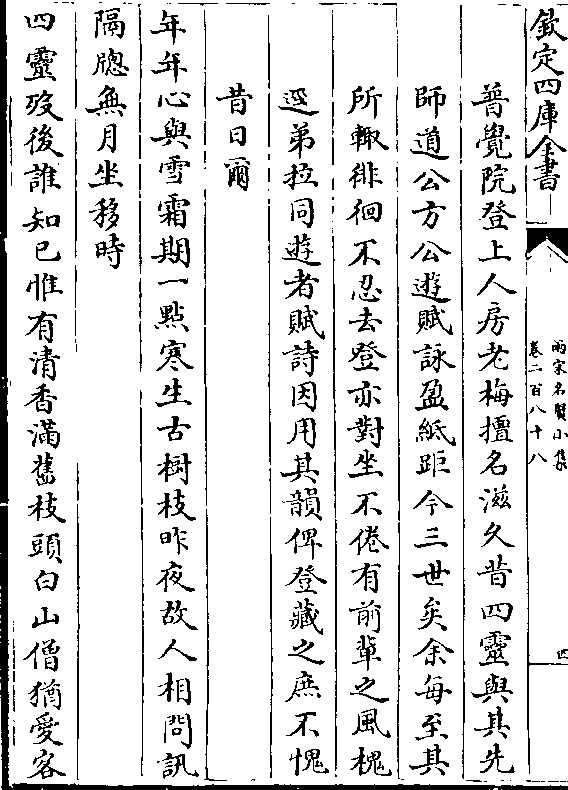 欽定四庫全書
兩宋名賢小集
卷二百八十八
四
普覺院登上人房老梅擅名滋久昔四靈與其先
師道公方公遊賦詠盈紙距今三世矣余每至其
所輙徘徊不忍去登亦對坐不倦有前輩之風槐
逕弟拉同遊者賦詩因用其韻俾登藏之庶不愧
昔日爾
年年心與雪霜期一點寒生古樹枝昨夜故人相問訊
隔牎無月坐移時
四靈歿後誰知已惟有清香滿舊枝頭白山僧猶愛客